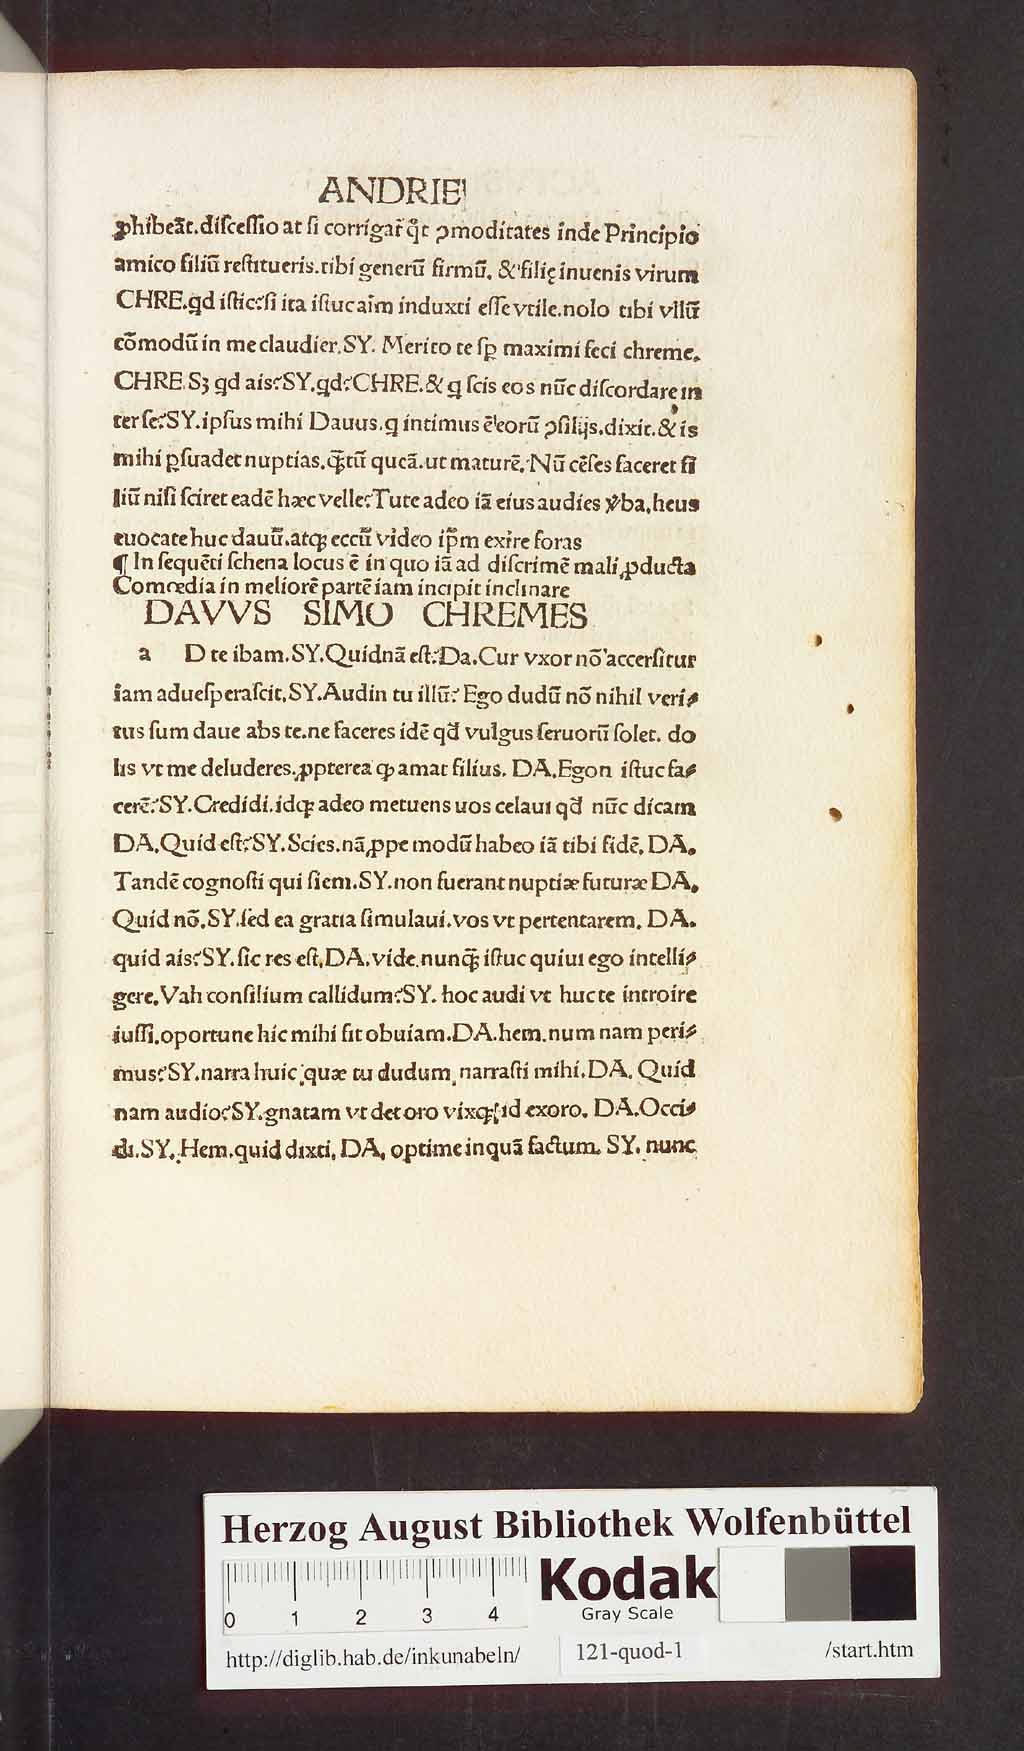 ANDRIE
ꝓhibeāt.diſceſſio at ſi corrigat᷑ qͥt ꝯmoditates inde Principio
amico filiū reſtitueris.tibi generū firmū. & filię inuenis virum
CHRE.qd iſtic:ſi ita iſtuc aīm induxti eſſe vtile.nolo tibi vllū
cōmodū in me claudier.SY. Merito te ſꝑ maximi feci chreme.
CHRE.Sꝫ qd ais:SY.qd:CHRE.& q ſcis eos nūc diſcordare in
ter ſe:SY.ipſus mihi Dauus.q intimus ē eorū ꝯſilijs.dixit.& is
mihi ꝑſuadet nuptias.q̄tū queā.ut maturē. Nū cēſes faceret fi
liū niſi ſciret eadē hæc velle:Tute adeo iā eius audies v̓ba.heus
euocate huc dauū.atqꝫ eccū video ip̄m exire foras
¶ In ſequēti ſchena locus ē in quo iā ad diſcrimē mali ꝓducta
Comœdia in meliorē partē iam incipit inclinare
DAVVS SIMO CHREMES
a D te ibam.SY.Quidnā eſt:Da.Cur vxor nō accerſitur
iam adueſperaſcit.SY.Audin tu illū: Ego dudū nō nihil veri⸗
tus ſum daue abs te.ne faceres idē qd̓ vulgus ſeruorū ſolet. do
lis vt me deluderes.ꝓpterea qꝫ amat filius. DA.Egon iſtuc fa⸗
cerē:SY.Credidi.idqꝫ adeo metuens uos celaui qd̓ nūc dicam
DA.Quid eſt:SY.Scies.nā ꝓpe modū habeo iā tibi fidē. DA.
Tandē cognoſti qui ſiem.SY.non fuerant nuptiæ futuræ DA.
Quid nō.SY.ſed ea gratia ſimulaui.vos vt pertentarem. DA.
quid ais:SY.ſic res eſt.DA.vide.nunq̄ iſtuc quiui ego intelli⸗
gere.Vah conſilium callidum:SY. hoc audi vt huc te introire
iuſſi.oportune hic mihi fit obuiam.DA.hem.num nam peri⸗
mus:SY.narra huic quæ tu dudum narraſti mihi.DA. Quid
nam audio:SY.gnatam vt det oro vixqꝫ id exoro. DA.Occi⸗
di.SY. Hem.quid dixti. DA. optime inquā factum. SY. nunc
Herzog August Bibliothek Wolfenbüttel
0 1 2 3 4
Kodak
Gray Scale
http://diglib.hab.de/inkunabeln/ 121-quod-1 /start.htm